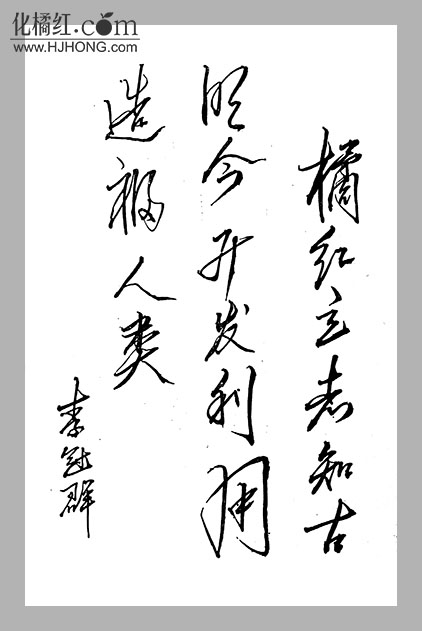 化橘红.com
www.HJHONG.com
橘红立志知古
明今开发利用
造福人类
李冠群